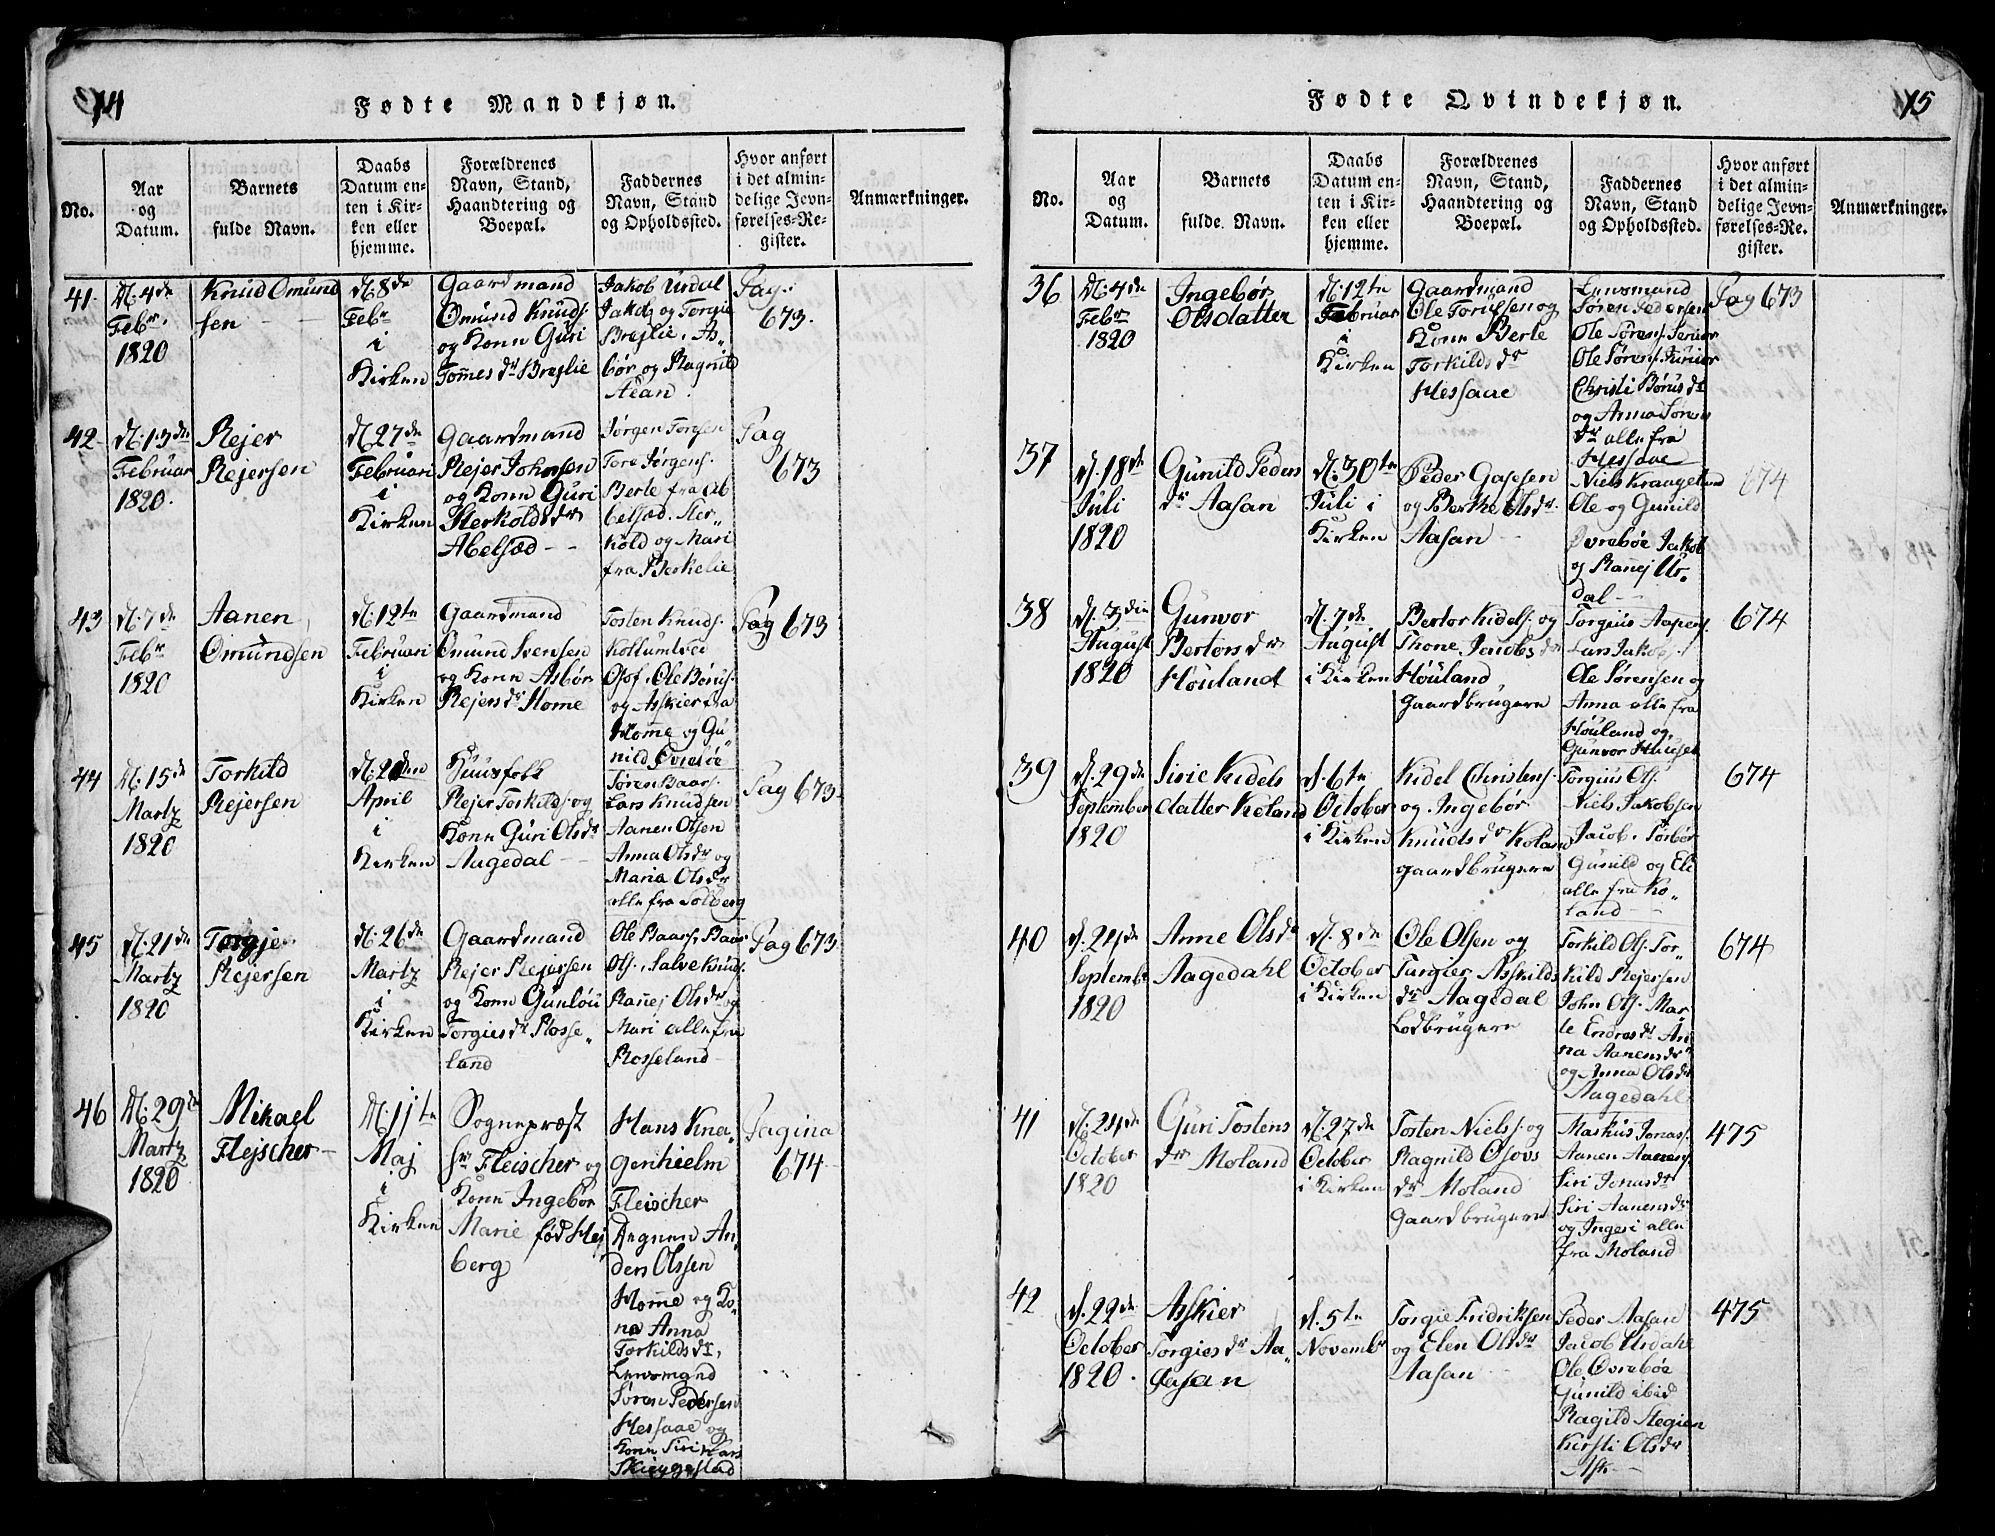 14
Fødte Mandkjøn.
No.
Aar
og
Datum.
Barnets
fulde Navn.
Daabs
Datum en-
ten i Kir-
ken eller
hjemme.
Forældrenes
Navn, Stand,
Haandtering og
Boepæl.
Faddernes
Navn, Stand
og Opholdssted.
Hvor anført
i det almin-
delige Jevn-
førelses-Re-
gister.
Anmærkninger.
41.
D. 4de
Febr.
1820
Knud Omund
sen
D. 8de
Febr
i
Kirken
Gaardmand
Omund Knuds.
og Kone Guri
Tomes dr Brejlie
Jakob Urdal
Jakob og Torgie
Brejlie, As„
bør og Ragnild
Aean
Pag.
673.
42
D. 13de
Februar
1820.
Rejer
Rejersen
D. 27de
Februari
i
Kirken
Gaardmand
Rejer Johnsen
og Kone Guri
Sterkolds dr
Abelsæd
Jørgen Torgsen
Tore Jørgens.
Berte fra Ab
belsæd. Ster„
kold og Mari
fra Berkelie
Pag
673
43
D. 7de
Febr
1820
Aanen
Omundsen
D. 12te
Februari
i
Kirken
Gaardmand
Omund Svensen
og Kone Asbør
Rejers dr Home
Tosten Knuds.
Kollumtved
Osof. Ole Børus.
og Asskier fra
Home og Gu
nild Øvrebøe
Pag 673
44
D. 15de
Martz
1820
Torkild
Rejersen
April
i
Kirken
Huusfolk
Rejer Torkilds. og
Kone Guri Olsdr
Aagedal
Søren Baars.
Lars Knudsen
Aanen Olsen
Anna Olsdr og
Maria Olsdr
alle fra Solberg
Pag 673.
45
D. 21de
Martz
1820
Torgje
Rejersen
D. 26de
Martz
i
Kirken
Gaardmand
Rejer Rejersen
og Kone Gunlou
Torgies dr Rosse„
land
Ole Baars. Baar
Ols. Salve Knuds.
Ranej Olsdr og
Mari alle fra
Rosseland
Pag 673.
46
D. 29de
Martz
1820
Mikael
Flejscher
D. 11te
Maj
i
Kirken
Sognepræst
Hr Fleischer og
Kone Ingebør
Marie fød Hej
berg
Hans Kna„
genhielm
Fleischer
Degnen An„
ders Olssen
Home og Ko„
ne Anna
Torkilds dr,
Lensmand
Søren Pedersen
Hessaae og
Kone Siri Lars
Skieggestad
Pagina
674
15
Fødte Qvindekjøn.
No.
Aar
og
Datum.
Barnets
fulde Navn.
Daabs
Datum en-
ten i Kir-
ken eller
hjemme.
Forældrenes
Navn, Stand,
Haandtering og
Boepæl.
Faddernes
Navn, Stand
og Opholdssted.
Hvor anført
i det almin-
delige Jevn-
førelses-Re-
gister.
Anmærkninger.
36
D. 4de
Febr
1820
Ingebør
Olsdatter
D. 12te
Februar
i
Kirken
Gaardmand
Ole Torussen og
Kone Berte
Torkilds dr
Hessaae
Lensmand
Søren Pedersen
Ole Sørens. Senior
Ole Sørens. Junior
Christi Børus dr
og Anna Sørens
dr alle fra
Hessaae
Pag 673
37
d. 18de
Juli
1820
Gunild Peders
dr Aasan
D. 30te
Juli i
Kirken
Peder Gassesen
og Berthe Olsdr.
Aasan
Niels Kraageland
Ole og Gunild
Øvrebøe Jakob
og Ranej Ur„
dal
674
38
d. 3die
August
1820
Gunvor
Bertors dr
Houland
D. 7de
August
i Kirken
Bertor Kidels. og
Thone Jacobs dr
Houland
Gaardbrugere
Torgius Aapens.
Lars Jakobs.
Ole Sørensen og
Anna alle fra
Houland og
Gunvor Huuset
674
39
d. 29de
September
1820
Sirie Kidels
datter Koland
d. 6te
October
i Kirken
Kidel Christens.
og Ingebør
Knuds dr Koland
gaardbrugere
Torgius Ols.
Niels Jakobsen
Jacob. Torbør
Gunild og Eli
alle fra Ko„
land
674
40
d. 24de
Septembr
1820
Anne Olsdr
Aagedahl
d. 8de
October
i Kirken
Ole Olsen og
Turgier Asskilds
dr Aagedal
Lodbrugere
Torkild Ols. Tor„
kild Rejersen
John Ols. Mar„
te Endres dr An
na Aanens dr
og Anna Olsdr
Aagedahl
674
41
D. 24de
October
1820
Guri Tostens
dr Moland
D. 27de
October
i Kirken
Tosten Niels. og
Ragnild Osovs
dr Moland
Gaardbrugere
Markus Jonas.
Aanen Aanens.
Siri Jonas dr
Siri Aanens dr
og Ingeri alle
fra Moland
475
42
d. 22de
October
1820.
Asskier
Torgies dr Aa„
sasan
d. 5te
Novembr
Torgie Fridriksen
og Elen Olsdr
Aasan
Peder Aasan
Jacob Urdahl
Ole Øvrebøe
Gunild ibid
Ragild Stegien
Kirsti Olsdr
Ask
475